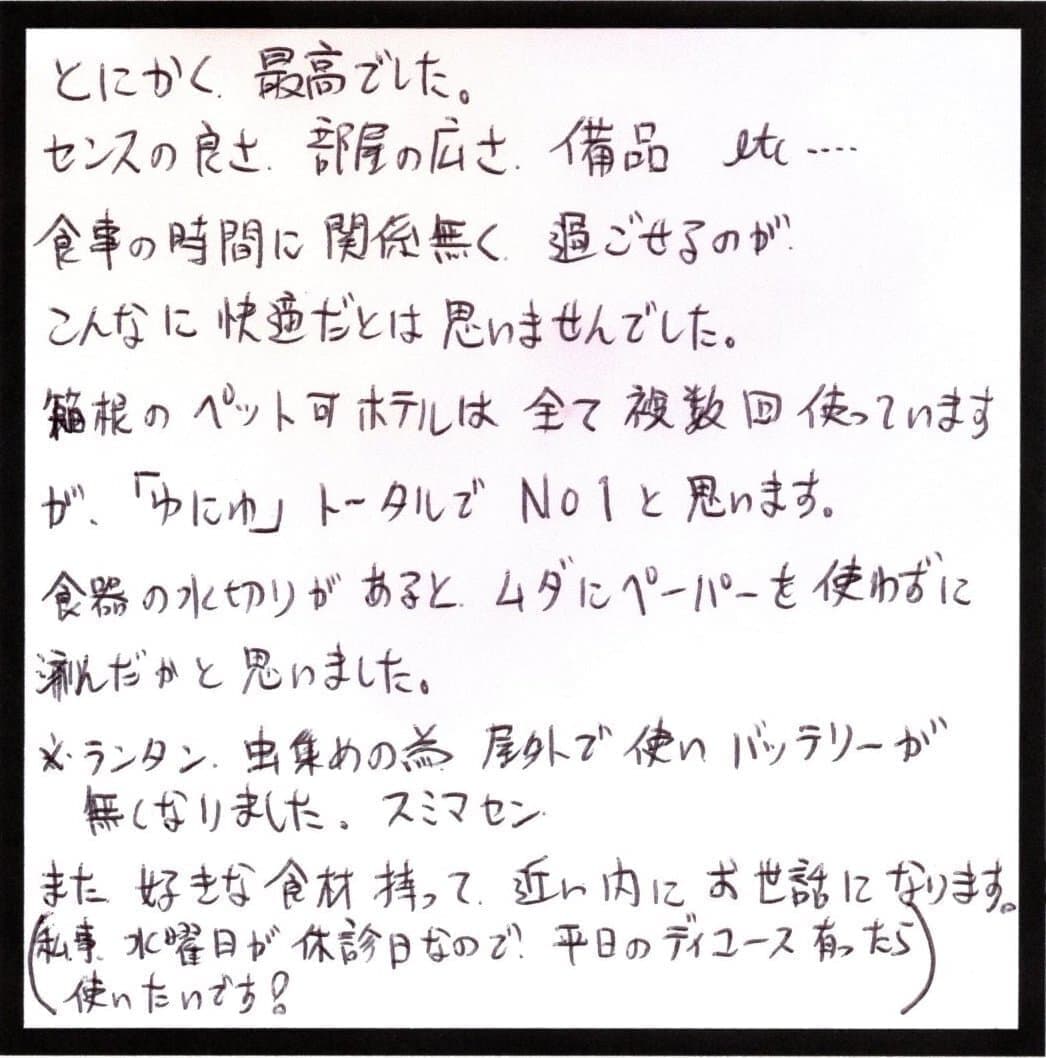 とにかく、最高でした。
センスの良さ、部屋の広さ、備品 etc‥‥
食事の時間に関係無く、過ごせるのが、
こんなに快適だとは思いませんでした。
箱根のペット可ホテルは全て複数回使っています
が、「ゆにゆ」トータルでNo1と思います。
食器の水切りがあると、ムダにペーパーを使わずに
済んだかと思いました。
※ランタン、虫集めの為、屋外で使いバッテリーが
無くなりました。スミマセン
また、好きな食材持って、近い内にお世話になります。
(私事、水曜日が休診日なので、平日のディユース有ったら
使いたいです!)